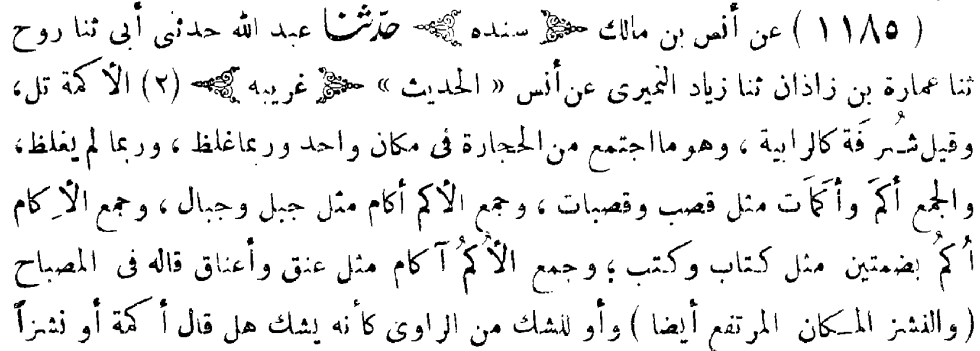 ( ١١٨٥ ) عن أنس بن مالك ﴿ سنده ﴾ حدّثنا عبد الله حدثنى أبى ثنا روح
ثنا عمارة بن زاذان ثنا زياد النميرى عن أنس « الحديث » ﴿ غريبه ﴾ (٢) الأكمة تل،
وقيل شُرفَة كالرابية ، وهو ما اجتمع من الحجارة فى مكان واحد وربما غلظ ، وربما لم يغلظ،
والجمع أكمَ وأكَمَات مثل قصب وقصبات ، وجمع الأكم أكام مثل جبل وجبال ، وجمع الأِكام
أُكُمٌ بضمتين مثل كتاب وكتب ؛ وجمع الأُكُمُ آكام مثل عنق وأعناق قاله فى المصباح
( والنشز المكان المرتفع أيضا ) وأو للشك من الراوى كأنه يشك هل قال أكمة أو نشزاً